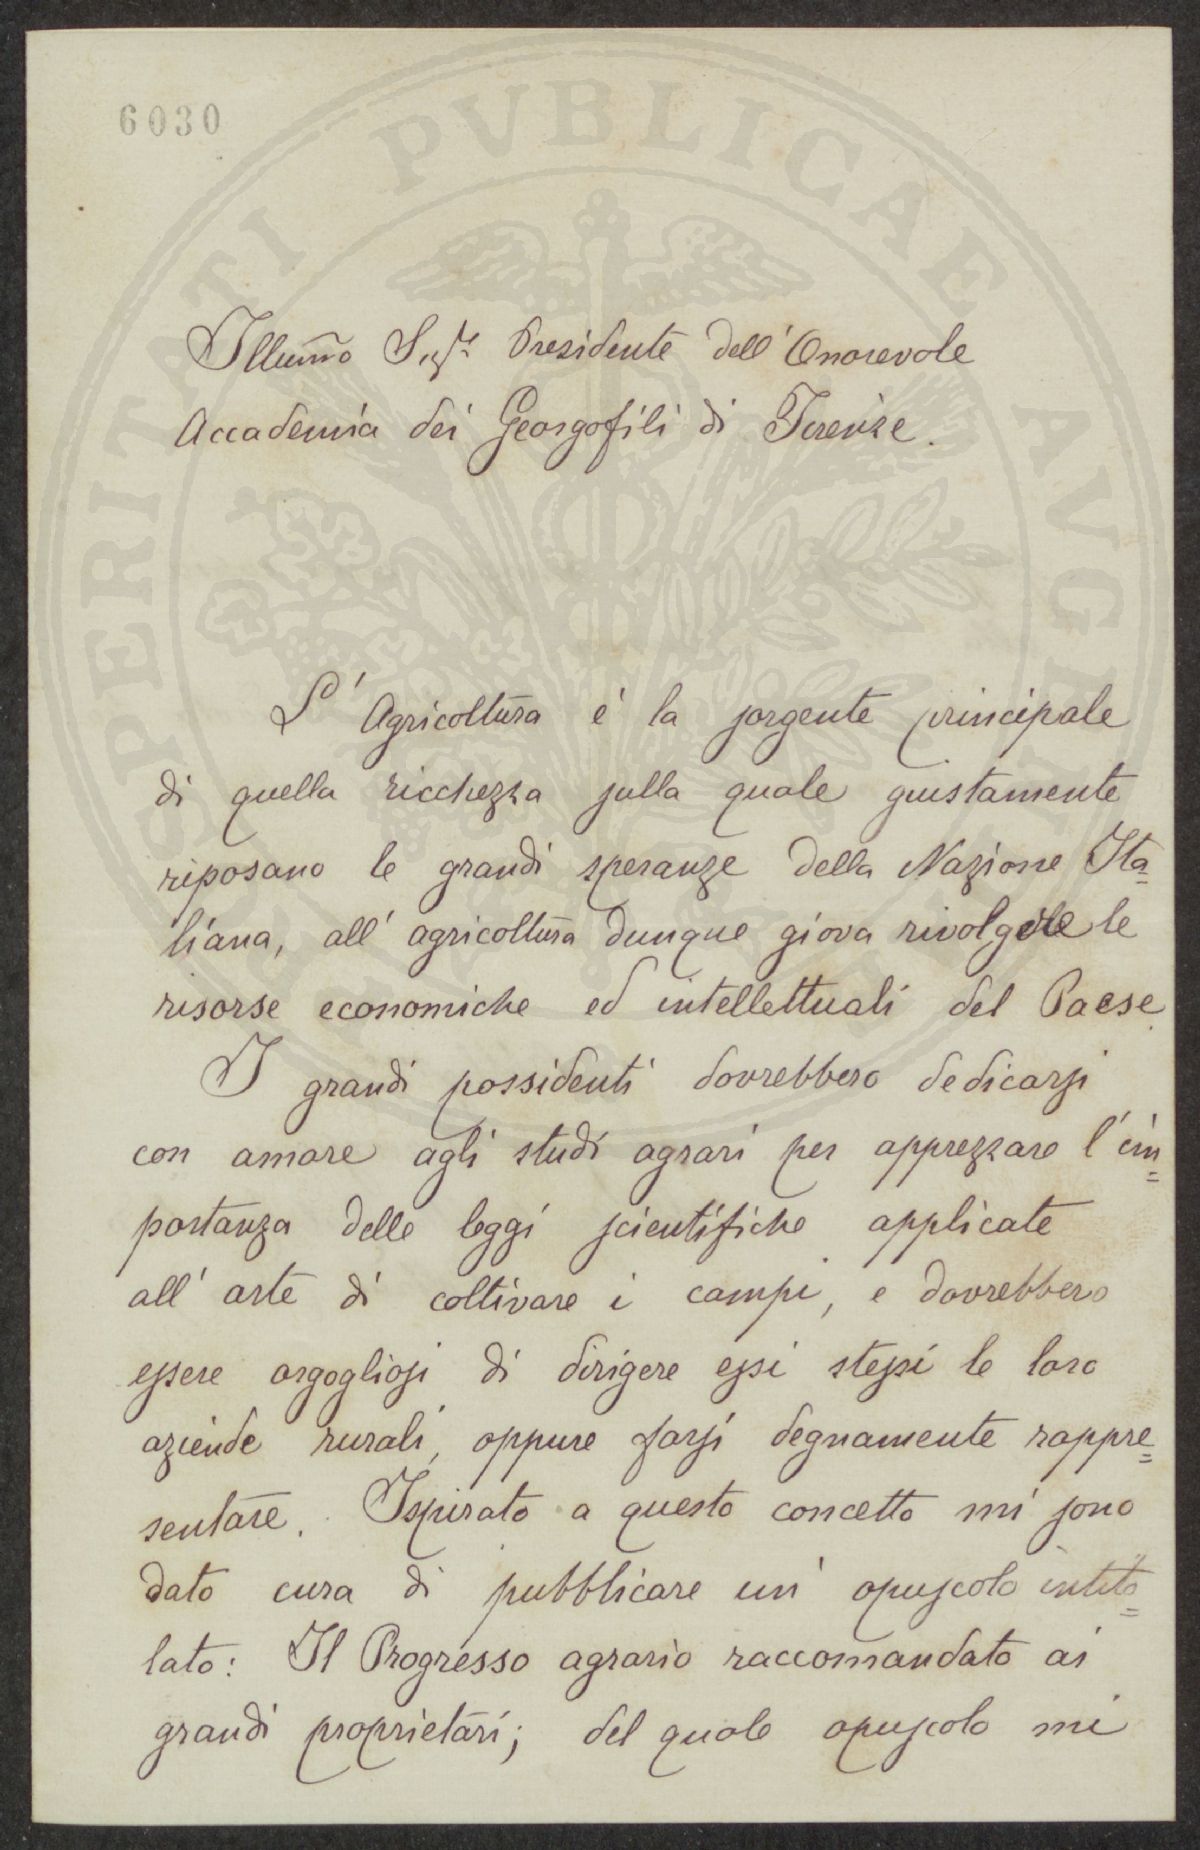 6030
PROSPERITATI PVBLICAE AVGENDAE
Illumo Sigr. Presidente dell' Onorevole
Accademia dei Georgofili di Firenze.
L' Agricoltura é la sorgente principale
di quella ricchezza sulla quale giustamente
riposano le grandi speranze della Nazione Ita=
liana, all' agricoltura dunque giova rivolgere le
risorse economiche ed intellettuali del Paese.
I grandi possidenti dovrebbero dedicarsi
con amore agli studi agrari per apprezzare l' im=
portanza delle leggi scientifiche applicate
all' arte di coltivare i campi, e dovrebbero
essere orgogliosi di dirigere essi stessi le loro
aziende rurali, oppure farsi degnamente rappre=
sentare. Ispirato a questo concetto mi sono
dato cura di pubblicare un' opuscolo intito=
lato: Il Progresso agrario raccomandato ai
grandi proprietari; del quale opuscolo mi